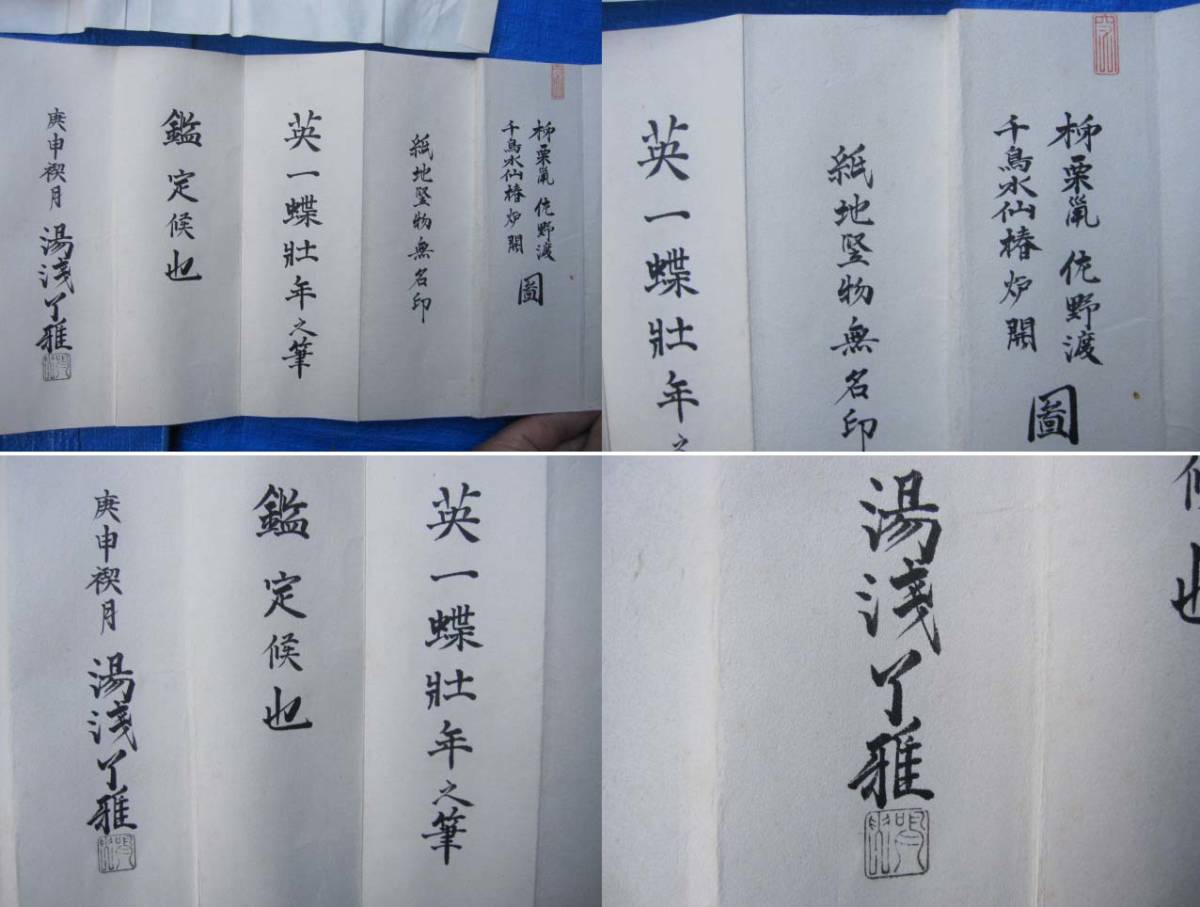 柳栗鼠 佐野渡
千鳥水仙椿炉開
圖
紙地竪物無名印
英一蝶壯年之筆
鑑定候也
庚申禊月 湯淺了雅
柳栗鼠 佐野渡
千鳥水仙椿炉開
圖
紙地竪物無名印
英一蝶壯年之
英一蝶壯年之筆
鑑定候也
庚申禊月 湯淺了雅
候也
湯淺了雅